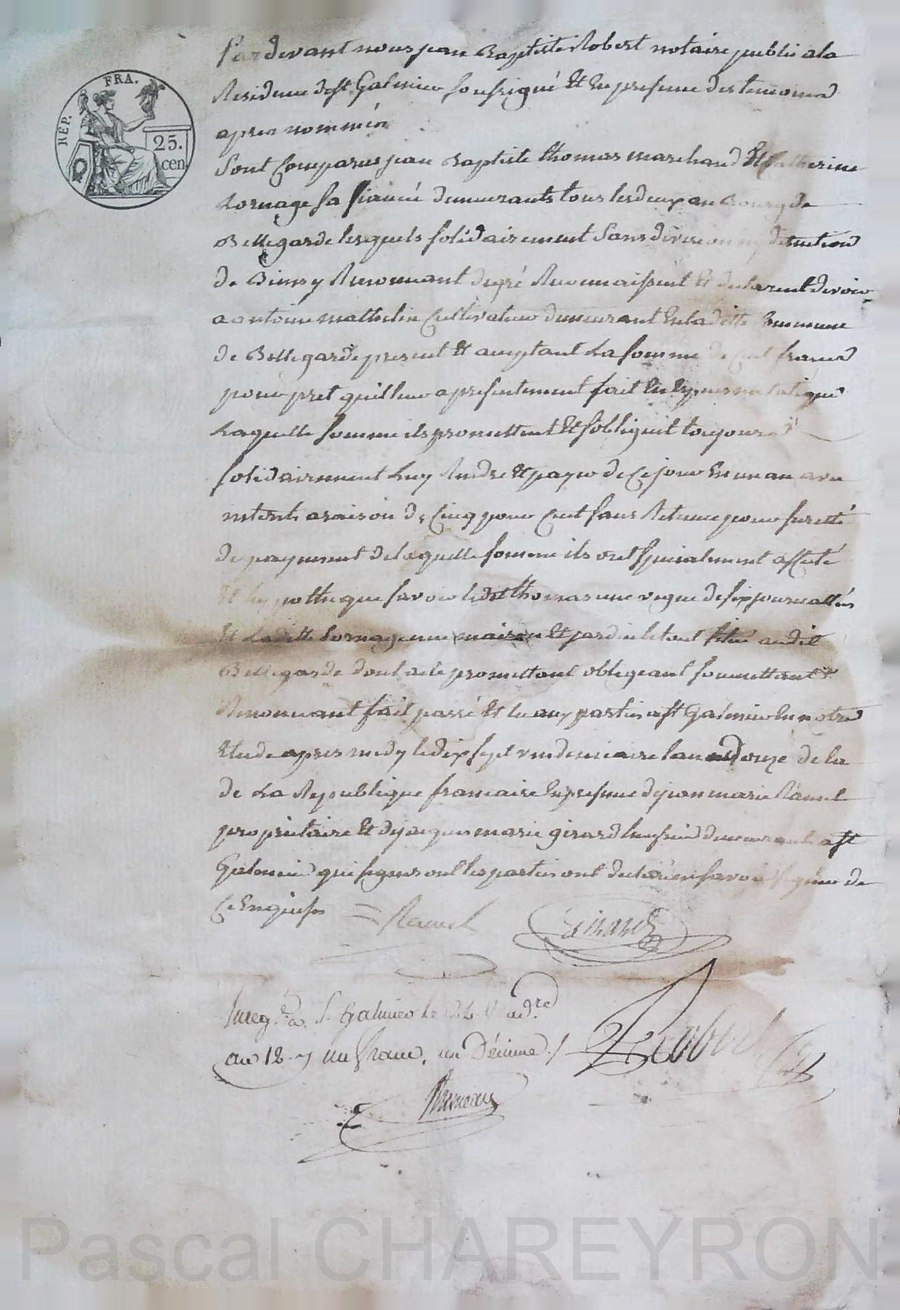 REP. FRA.
25.
cen
Pardevant nous jean Baptiste Robert notaire public a la
Residence de st Galmier soussigné Et En presence des temoins
apres nommés
Sont Comparus jean Baptiste thomas marchand Et Catherine
Lornage sa fiancée demeurants tous les deux au Bourg de
Bellegarde lesquels solidairement Sans division ny
de Biens y Renoncant degré Reconnaissent Et declarent devoir
a antoine mathelin Cultivateur demeurant En la ditte Commune
de Bellegarde present Et acceptant La somme de Cent francs
pour pret quil leur a presentement fait En Especes metalique
Laquelle somme ils promettent Et sobligent toujours
solidairement Luy Rendre Et payer de Ce jour En un an avec
interets a raison de Cinq pour Cent sans Retenue pour sureté
du payement de laquelle somme ils ont specialement affecté
Et hypotheque savoir ledit thomas une vigne de six journallées
Et Laditte Lornage une maison Et jardin le tout situé audit
Bellegarde dont acte promettant obligeant soumettant &
Renoncant fait passé Et lu aux parties a st Galmier En notre
Etude apres midy le dix sept vendemiaire lan douze de la
de La Republique francaise En presence de jean marie Ravel
propriétaire Et de jacques marie girard huissier demeurants a st
Galmier qui signeront les parties ont declaré ne savoir signer de
Ce Enquises = Ravel Girard
Enreg.é a S. Galmier le Vend.re
an 12. un franc, un Décime ./. Robert
Pascal CHAREYRON